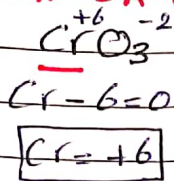 +6 -2
CrO₃
Cr-6=0
Cr=+6